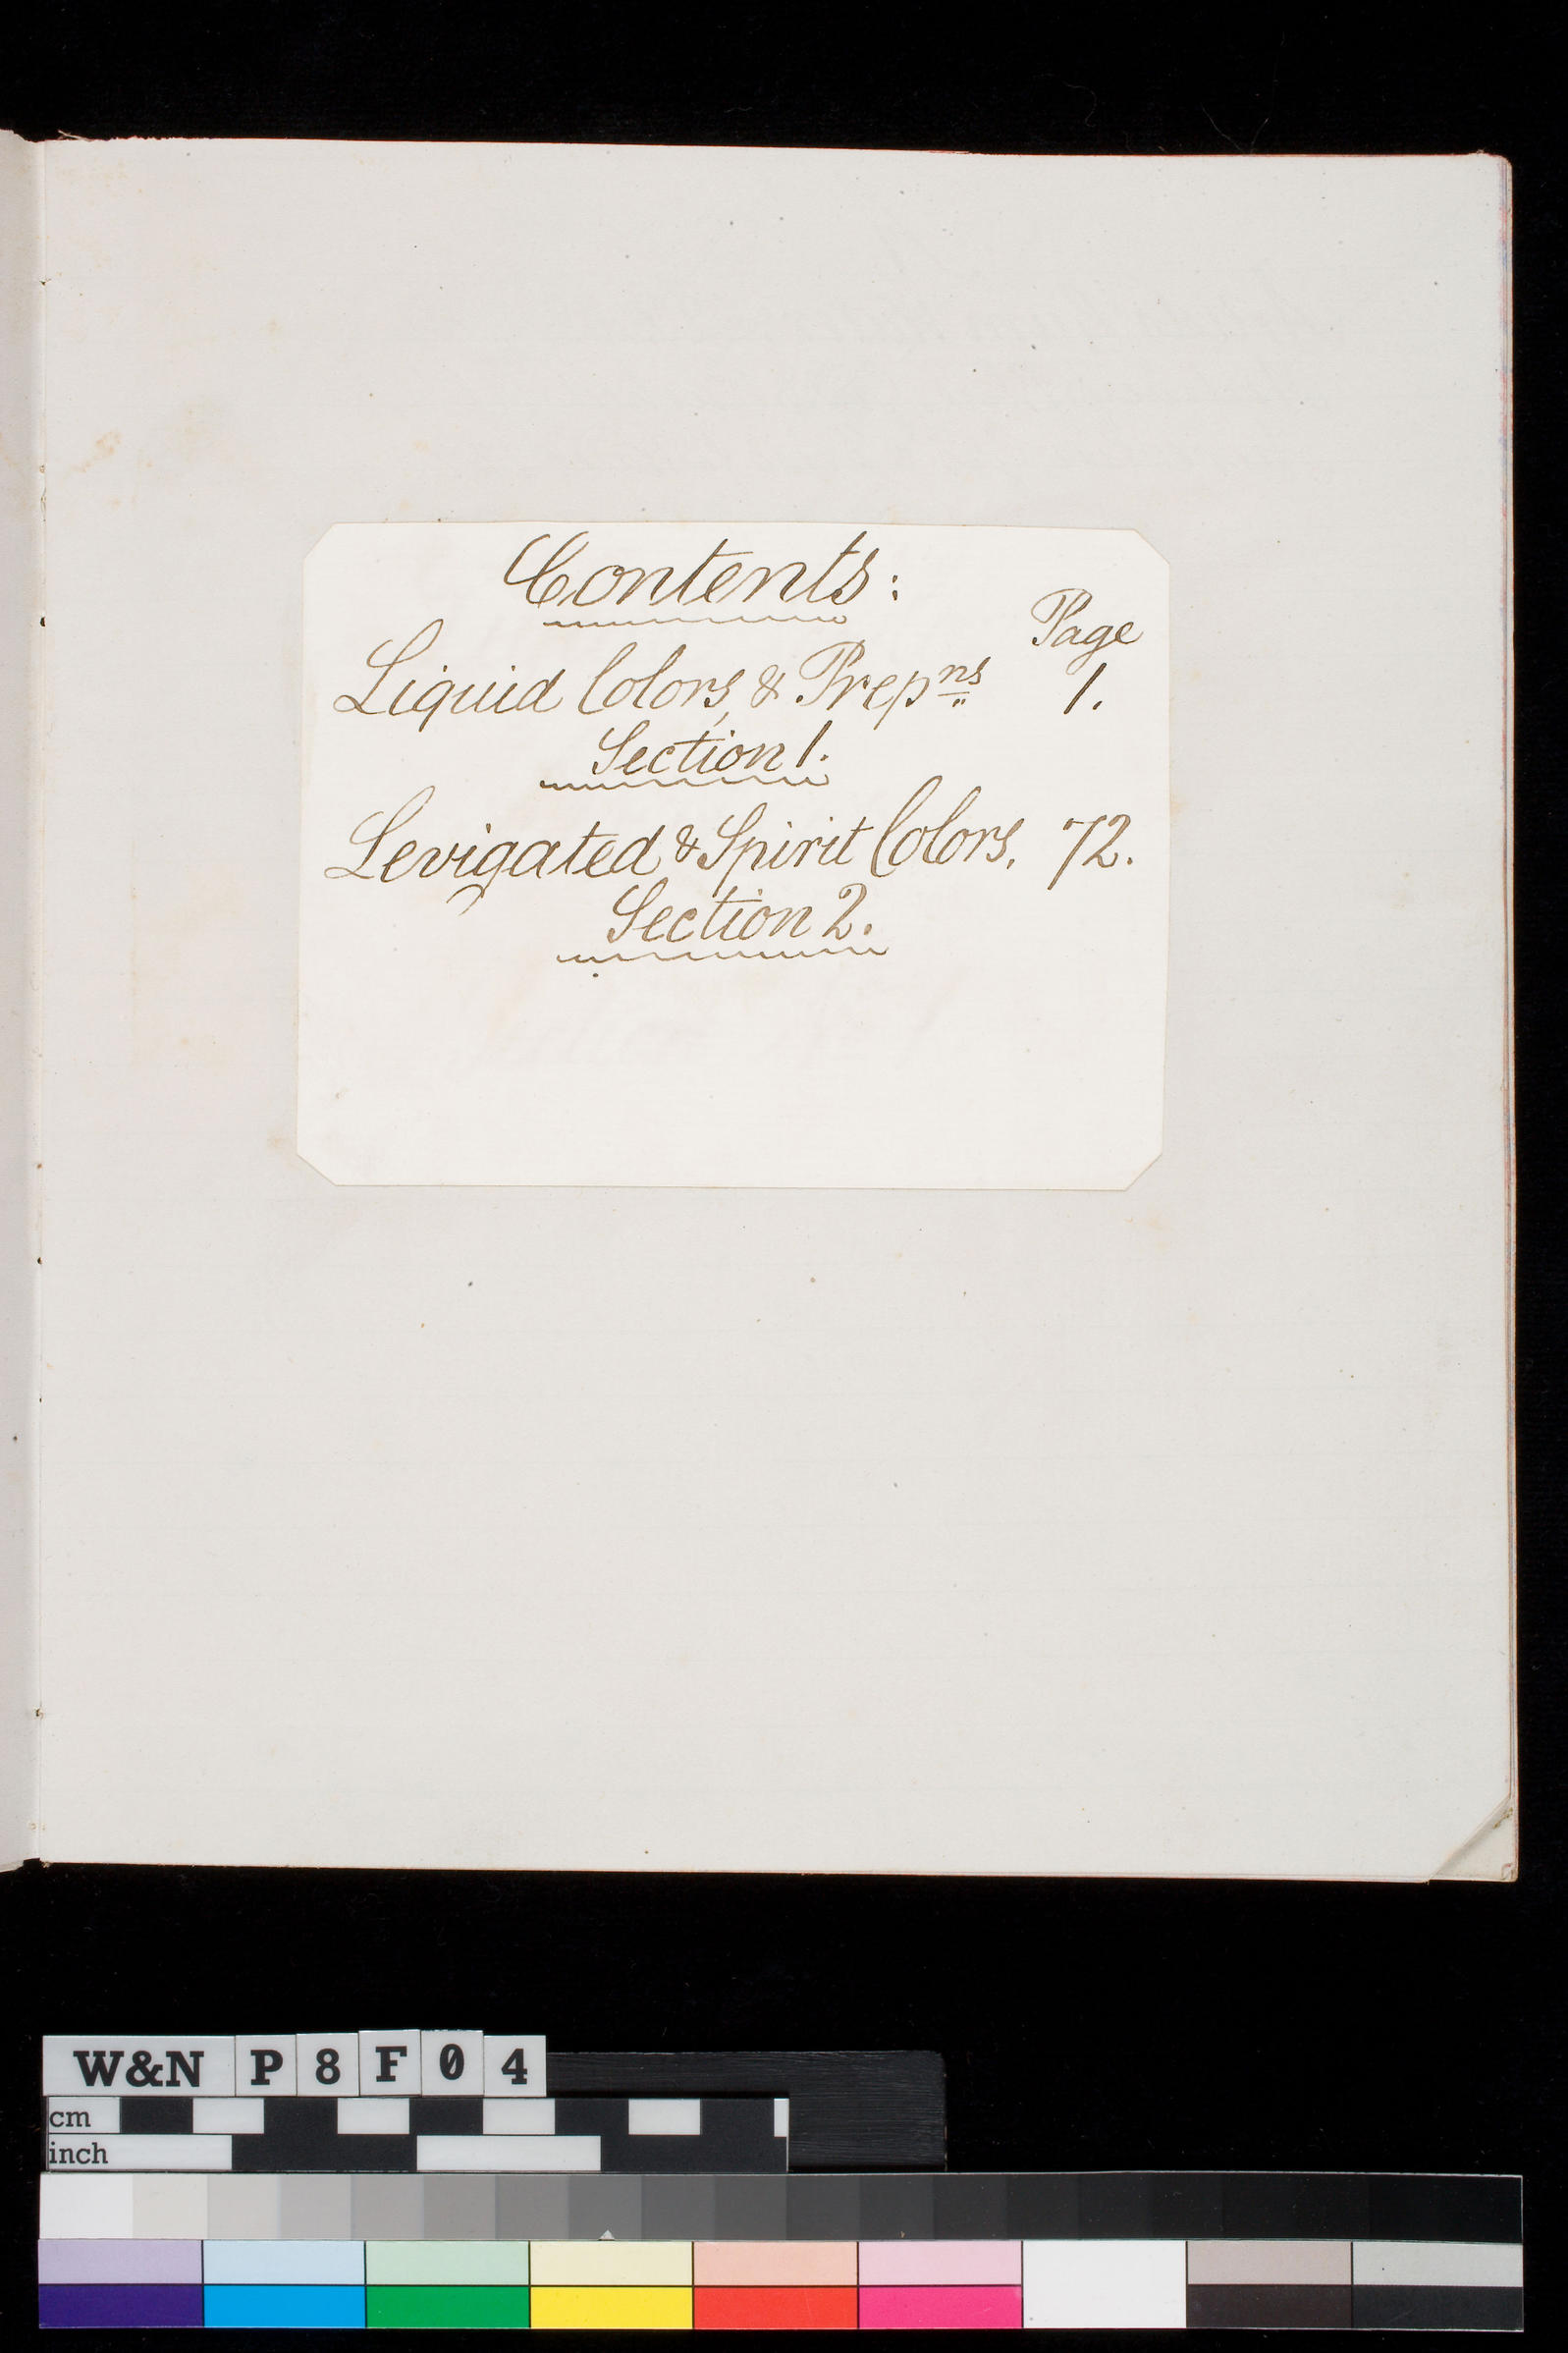 Contents:
Page
Liquid Colors, & Prepns 1.
Section 1.
Levigated & Spirit Colors, 72.
Section 2.
W&N P8F04
cm
inch